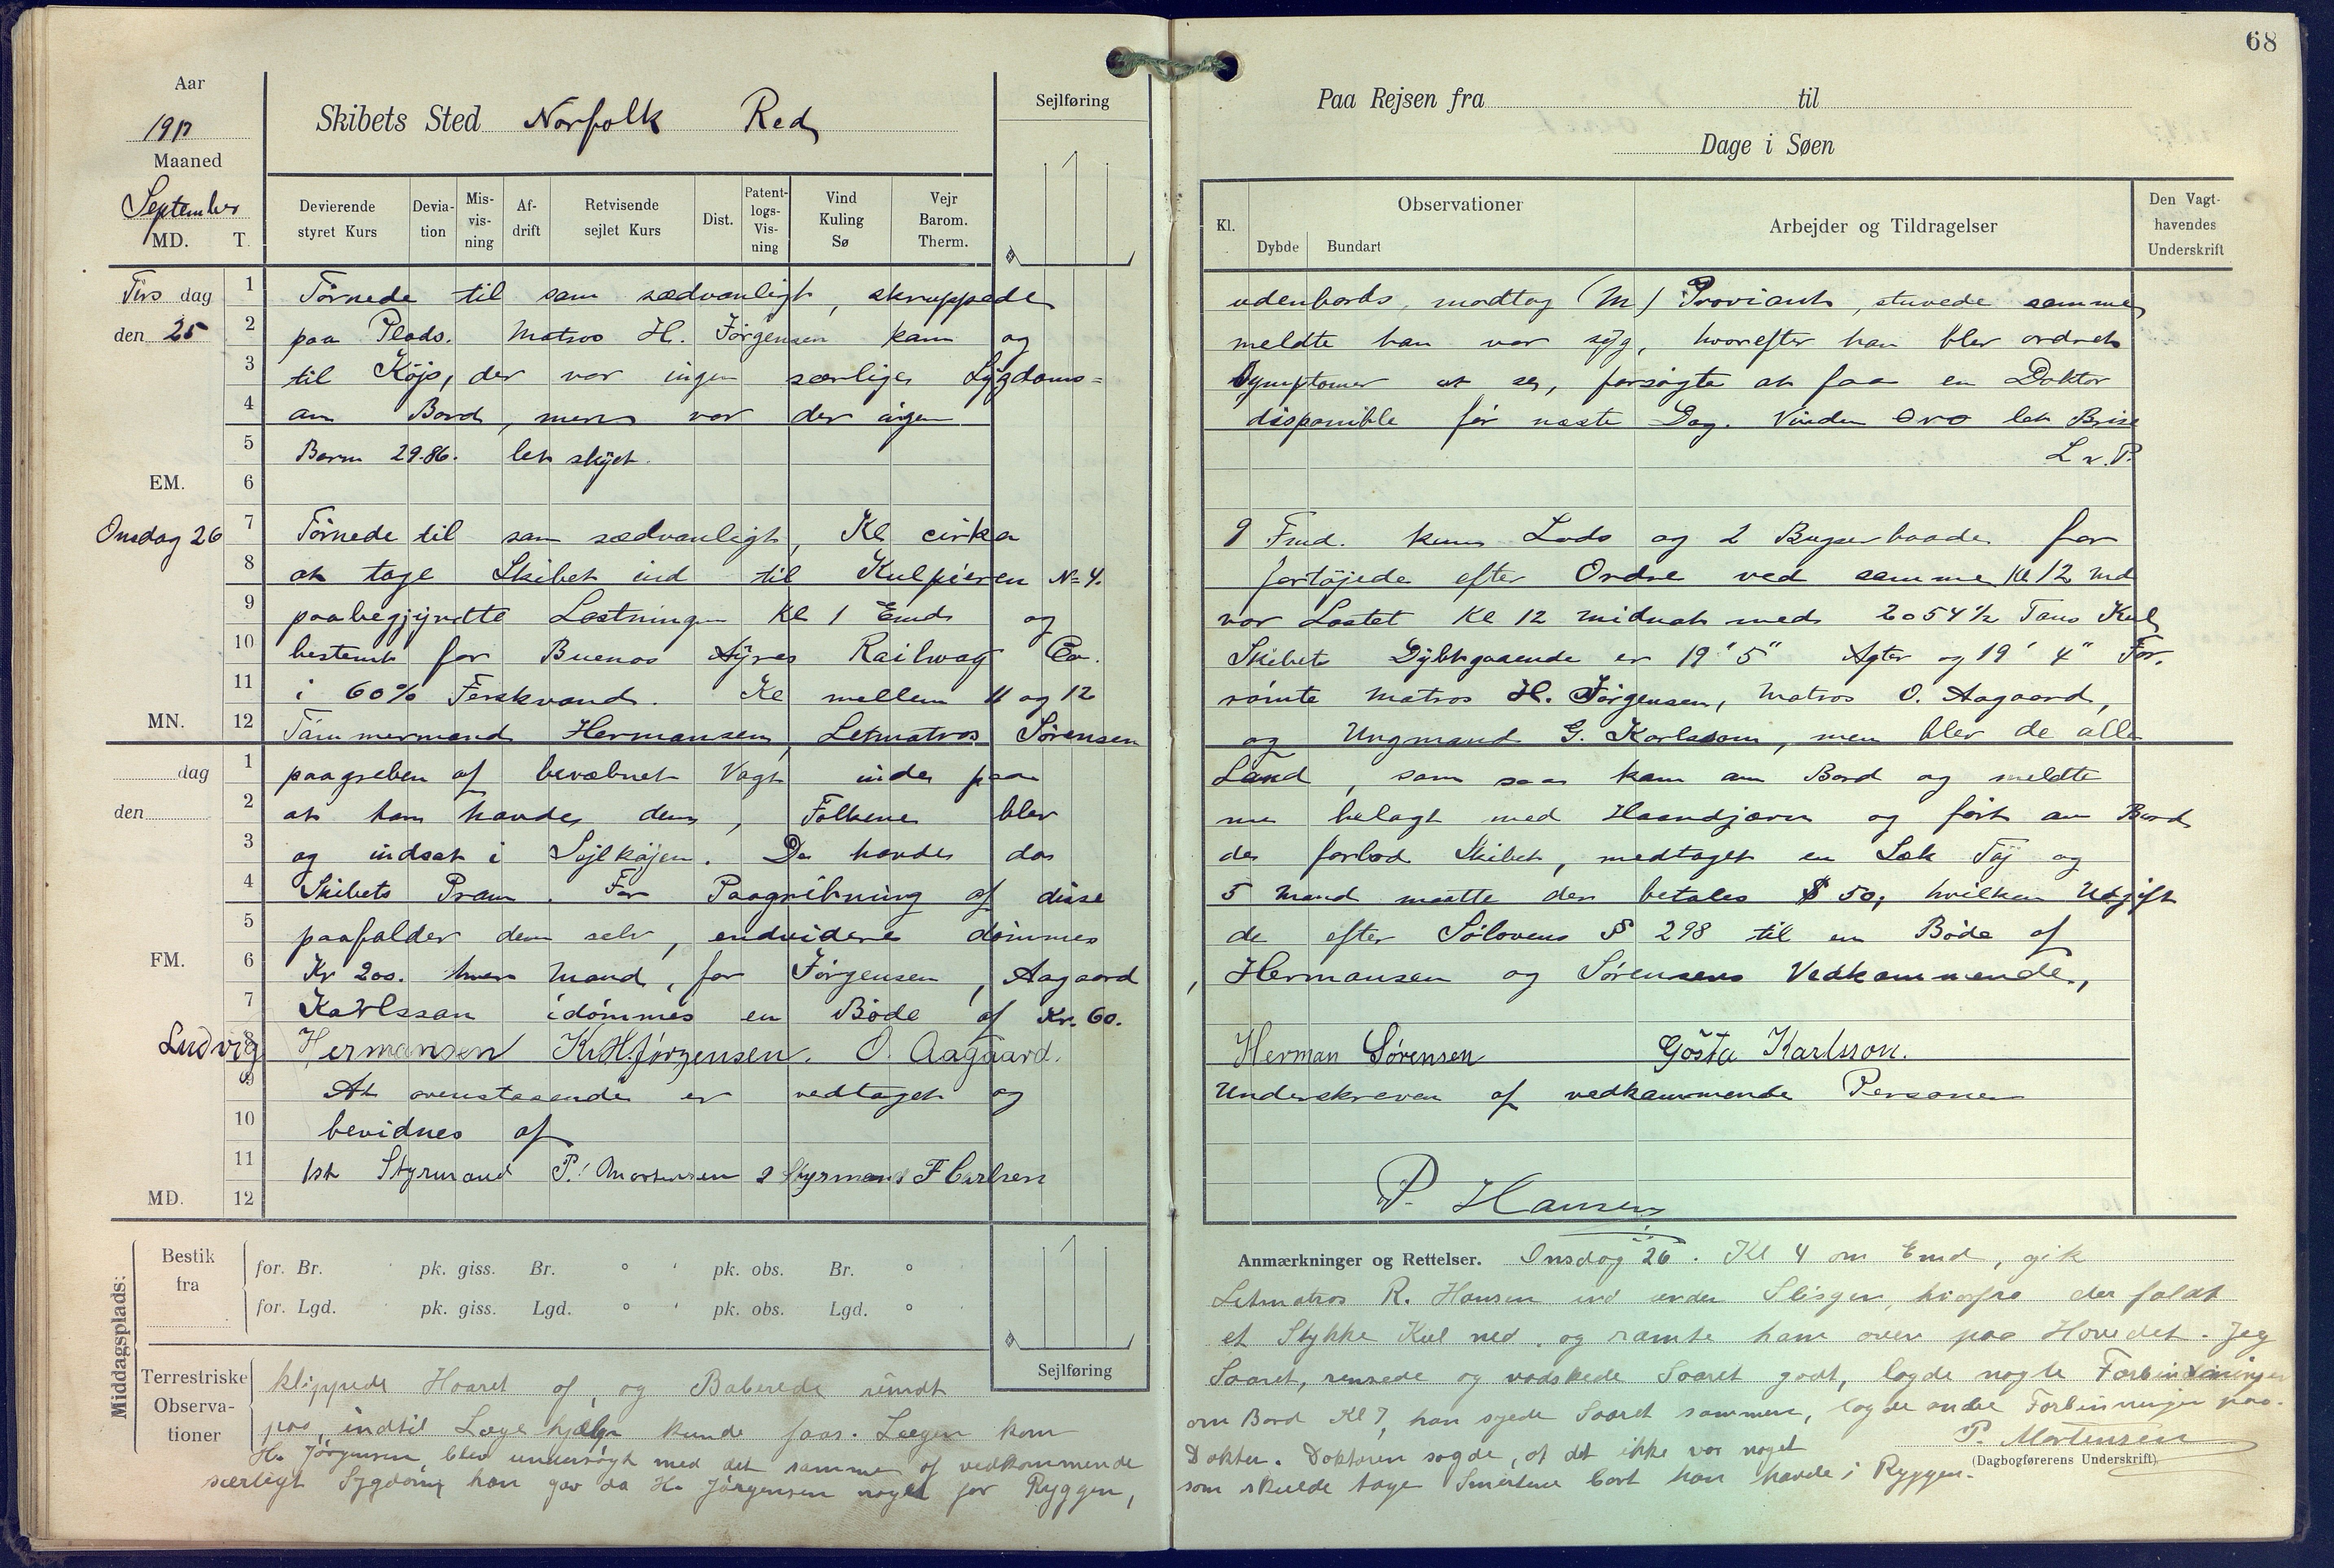 68
Aar
1917
Maaned
September
MD. T.
Skibets Sted Norfolk Red
Sejlføring
Devierende styret Kurs
Deviation
Misvisning
Afdrift
Retvisende sejlet Kurs
Dist.
Patentlogs-Visning
Vind Kuling Sø
Vejr Barom. Therm.
Paa Rejsen fra til
Dage i Søen
Kl.
Observationer
Dybde Bundart
Arbejder og Tildragelser
Den Vagthavendes Underskrift
Tirs dag
den 25
1 Törnede til som sædvanligt, skruppede udenbords, modtog (M) Proviant, stuvede samme
2 paa Plads. Matros H. Jörgensen kam og meldte han var syg, hvorefter han blev ordret
3 til Köjs, der var ingen særlige Sygdoms= Symptomer at se, forsögte at faa en Doktor
4 om Bord, men var der ingen disponible för næste Dag. Vinden OVO let Brise
5 Barm 29.86. let skyet. L v. P.
EM. 6
Onsdag 26
7 Törnede til som sædvanligt, Kl cirka 9 Fmd. kom Lods og 2 Bugserbaade for
8 at tage Skibet ind til Kulpieren No 4. fortöjede efter Ordre ved samme Kl 12 Md
9 paabegyndte Lastningen Kl 1 Emd og var Lastet Kl 12 midnat med 2054½ Tons Kul
10 bestemt for Buenos Ayres Railway Co. Skibets Dybtgaaende er 19' 5" Agter og 19' 4" For.
11 i 60% Ferskvand. Kl mellem 11 og 12 römte Matros H. Jörgensen, Matros O. Aagaard,
MN. 12 Tömmermand Hermansen, Letmatros Sörensen og Ungmand G. Karlsson, men blev de alle
dag
den
1 paagreben af bevæbnet Vagt inde paa Land, som saa kam om Bord og meldte
2 at han havde dem, Folkene blev nu belagt med Haandjærn og fört om Bord
3 og indsat i Sejlköjen. De havde da de forlod Skibet, medtaget en Sæk Töj og
4 Skibets Pram. For Paagribning af disse 5 Mand maatte der betales $ 50, hvilken Udgift
5 paafalder dem selv, endvidere dömmes de efter Sölovens § 298 til en Böde af
FM. 6 Kr 200. hver Mand, for Jörgensen, Aagaard, Hermansen og Sörensens Vedkammende,
7 Karlsson idömmes en Böde af Kr. 60.
8 Ludvig Hermansen K. H. Jörgensen. O. Aagaard. Herman Sørensen Gösta Karlsson.
9 At ovenstaaende er vedtaget og Underskreven af vedkammende Personer
10 bevidnes af
11 1st Styrmand P. Mortensen 2 Styrmand F Carlsen
MD. 12
P. Hansen
Middagsplads:
Bestik fra
for. Br. pk. giss. Br. ° ' pk. obs. Br. °
for. Lgd. pk. giss. Lgd. ° ' pk. obs. Lgd. °
Sejlføring
Terrestriske Observationer
Anmærkninger og Rettelser. Onsdag 26. Kl 4 om Emd, gik
Letmatros R. Hansen ind under Slisgen, hvorfra der faldt
et Stykke Kul ned, og ramte ham oven paa Hovedet. Jeg
klippede Haaret af, og Baberede rundt Saaret, rensede og vadskede Saaret godt, lagde nogle Forbindninger
paa, indtil Lægehjælp kunde faas. Lægen kom om Bord Kl 7, han syede Saaret sammen, lagde andre Forbinninger paa.
P. Mortensen
(Dagbogførerens Underskrift)
H. Jörgensen, blev undersögt med det samme af vedkommende Dokter. Doktoren sagde, at det ikke var noget
særligt Sygdom, han gav da H. Jörgensen noget for Ryggen, som skulde tage Smerterne bort han havde i Ryggen.